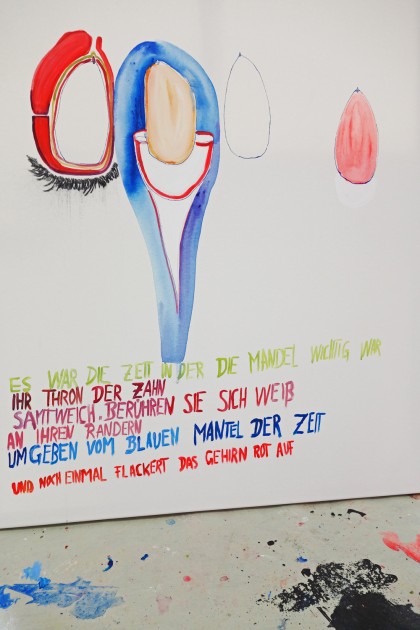 ES WAR DIE ZEIT IN DER DIE MANDEL WICHTIG WAR
IHR THRON DER ZAHN
SAMTWEICH. BERÜHREN SIE SICH WEIß
AN IHREN RÄNDERN
UMGEBEN VOM BLAUEN MANTEL DER ZEIT
UND NOCH EINMAL FLACKERT DAS GEHIRN ROT AUF